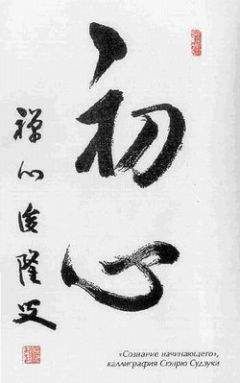 初心
禅心俊隆叟
«Сознание начинающего»,
каллиграфия Сюнрю Судзуки